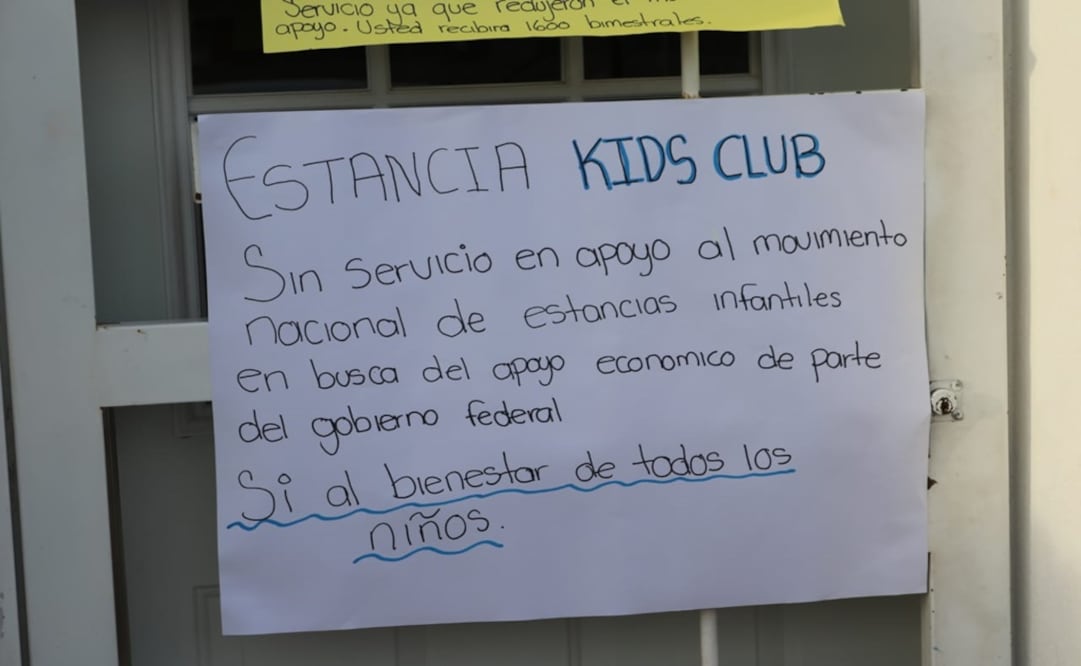 Servicio ya que redujeron el
apoyo. Usted recibira 1600 bimestrales.
ESTANCIA KIDS CLUB
Sin servicio en apoyo al movimiento
nacional de estancias infantiles
en busca del apoyo economico de parte
del gobierno federal
Si al bienestar de todos los
niños.